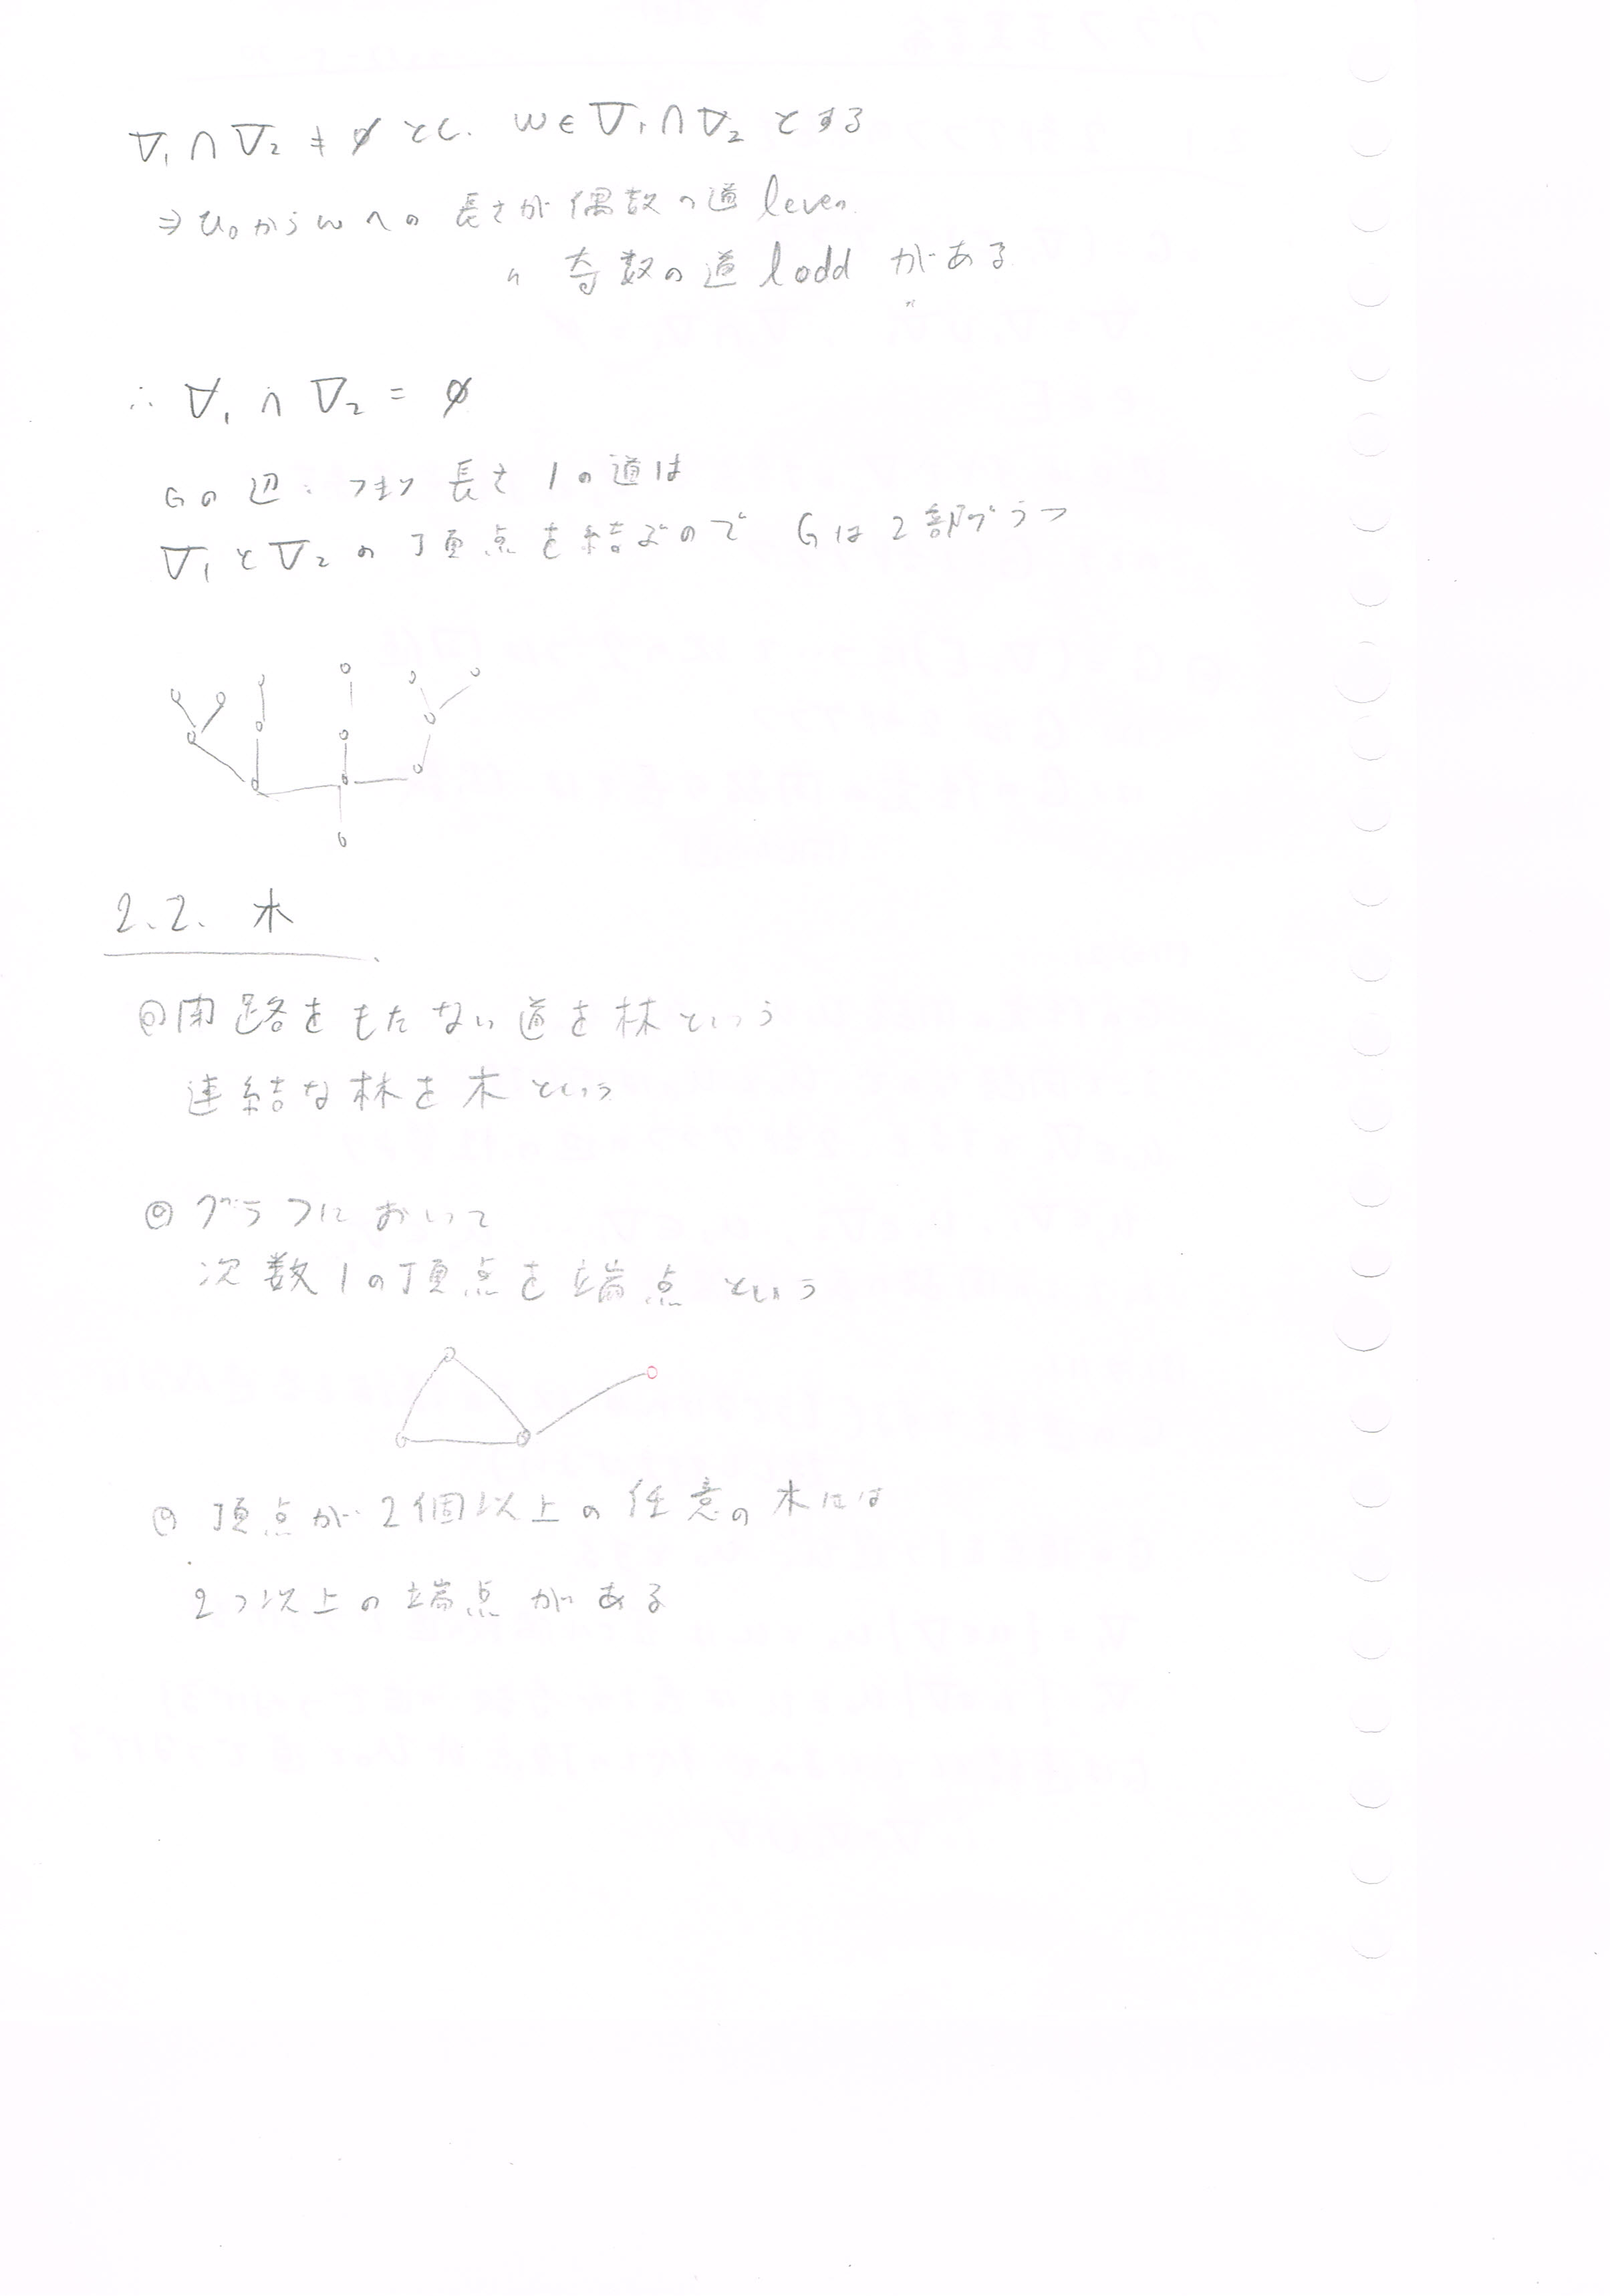 V₁∩V₂≠∅とし. w∈V₁∩V₂とする
⇒u₀からwへの長さが偶数の道leven
〃奇数の道loddがある
∴V₁∩V₂=∅
Gの辺、つまり長さ1の道は
V₁とV₂の頂点を結ぶのでGは2部グラフ
2.2. 木
◎閉路をもたない道を林という
連結な林を木という
◎グラフにおいて
次数1の頂点を端点という
◎頂点が2個以上の任意の木には
2つ以上の端点がある